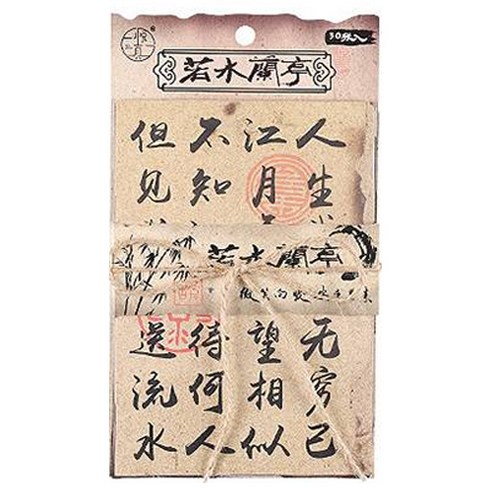 若水蘭亭
人生
无穷已
江月
望相似
不知
待何人
但见
送流水
若水蘭亭
微笑向暖